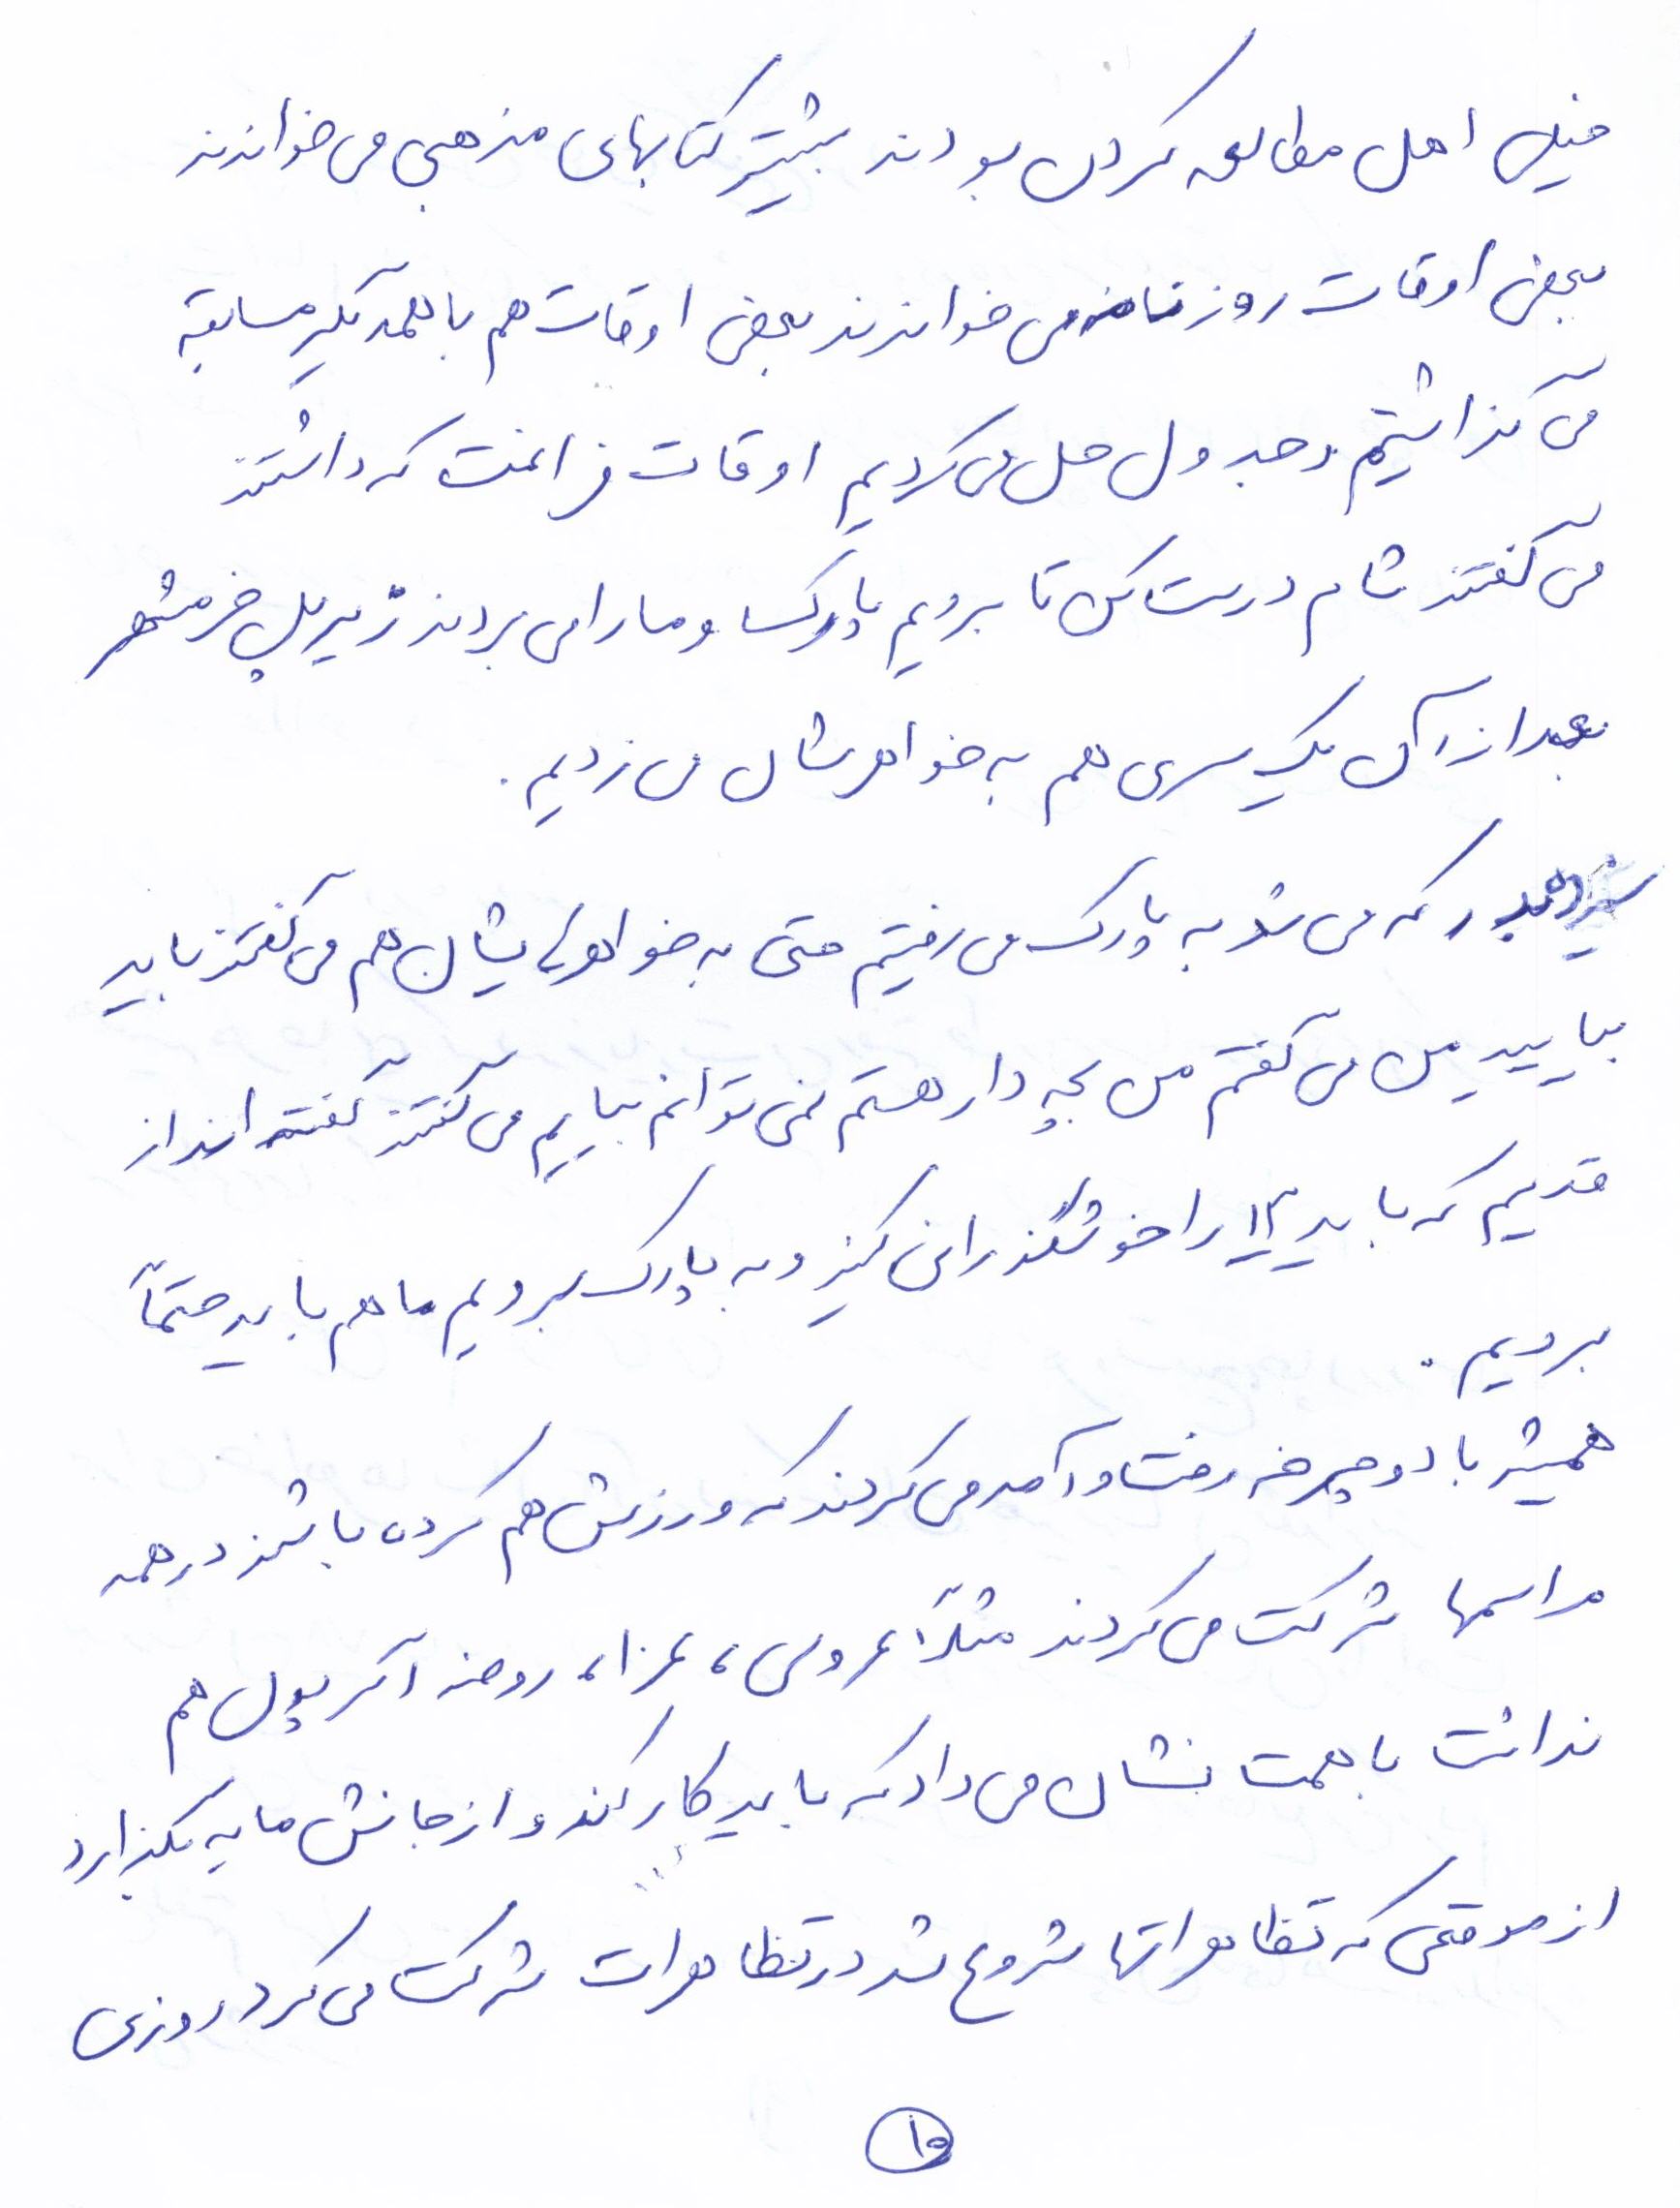 خیلی اهل مطالعه کردن بودند بیشتر کتابهای مذهبی می خواندند
بعضی اوقات روزنامه می خواندند بعضی اوقات هم با همدیگر مسابقه
می گذاشتیم وجدول حل می کردیم اوقات فراغت که داشتند
می گفتند شام درست کن تا برویم پارک و ما را می بردند زیر پل خرمشهر
بعد از آن یک سری هم به خواهرشان می زدیم .
سیزده بدر که می شد به پارک می رفتیم حتی به خواهرایشان هم می گفتند باید
بیایید من می گفتم من بچه دار هستم نمی توانم بیایم می گفتند گفته اند از
قدیم که باید ۱۳ را خوشگذرانی کنیز و به پارک برویم ما هم باید حتماً
برویم .
همیشه با دوچرخه رفت و آمد می کردند که ورزش هم کرده باشند در همه
مراسمها شرکت می کردند مثلاً عروسی ، عزا ، روضه اگر پول هم
نداشت با همت نشان می داد که باید کار کند و از جانش مایه بگذارد
از موقعی که تظاهراتها شروع شد در تظاهرات شرکت می کرد روزی
۱۵